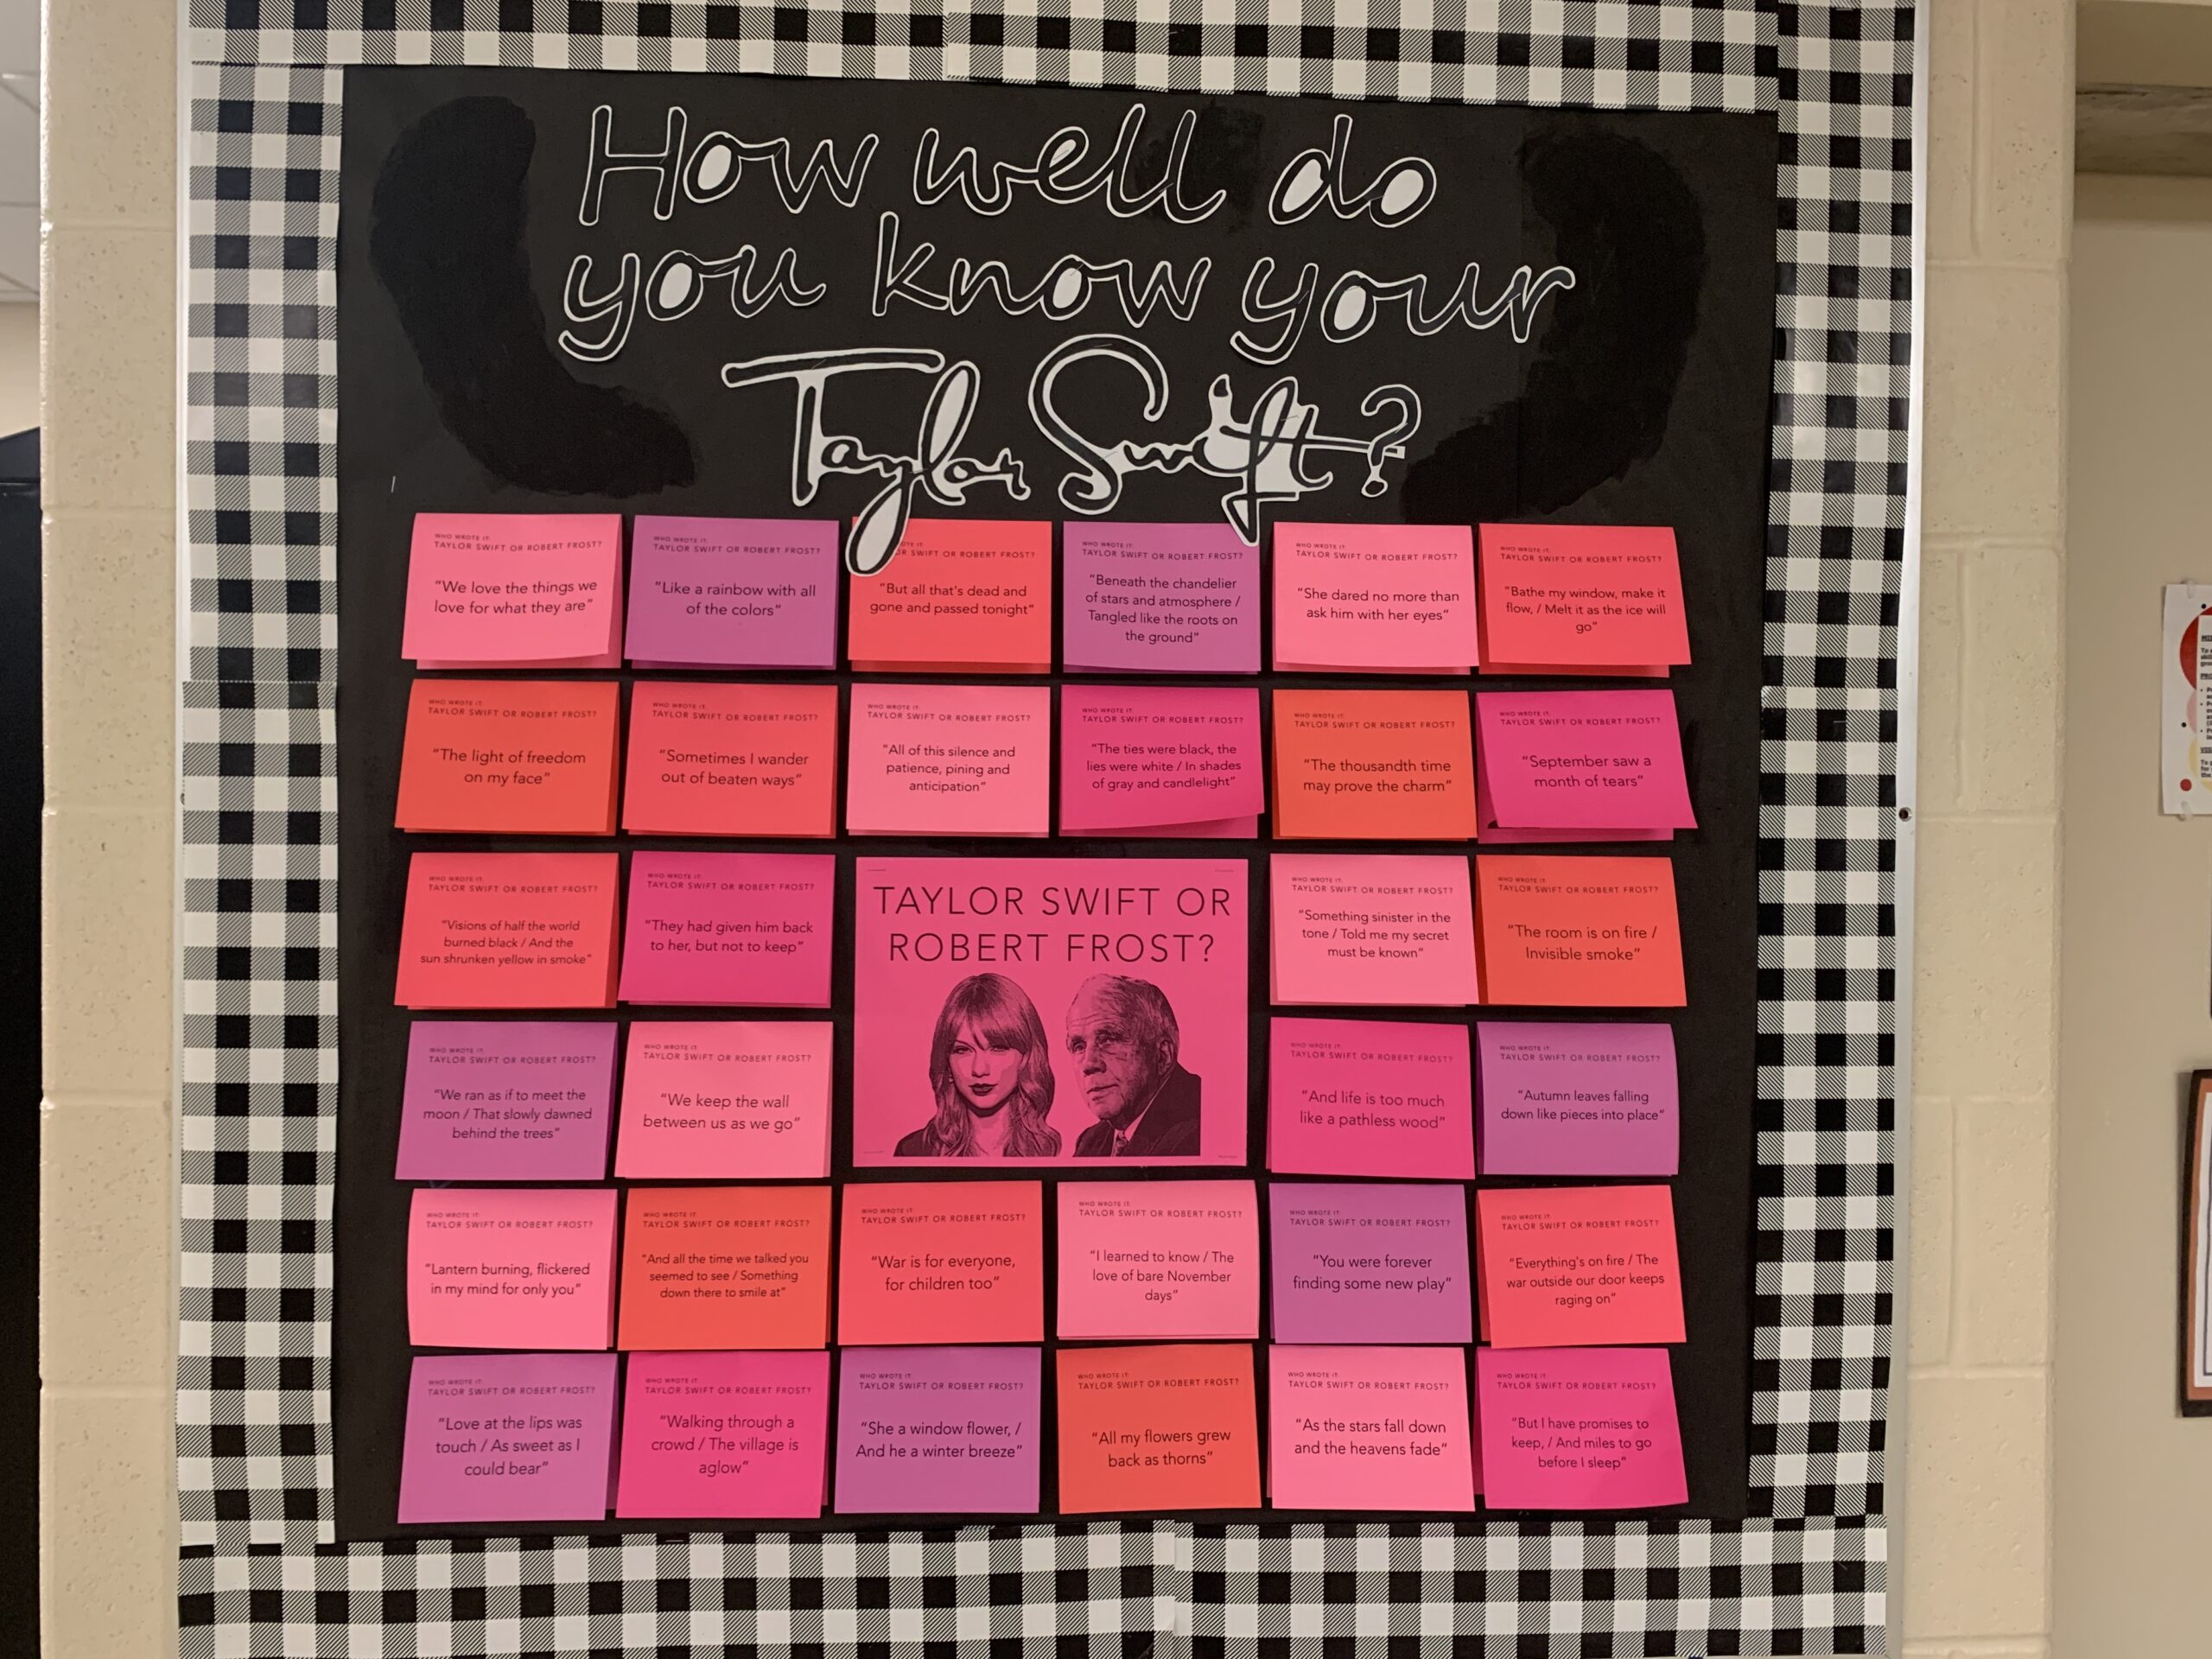 How well do
you know your
Taylor Swift?
WHO WROTE IT:
TAYLOR SWIFT OR ROBERT FROST?
"We love the things we
love for what they are"
WHO WROTE IT:
TAYLOR SWIFT OR ROBERT FROST?
"Like a rainbow with all
of the colors"
OR ROBERT FROST?
"But all that's dead and
gone and passed tonight"
WHO WROTE IT:
TAYLOR SWIFT OR ROBERT FROST?
"Beneath the chandelier
of stars and atmosphere /
Tangled like the roots on
the ground"
WHO WROTE IT:
TAYLOR SWIFT OR ROBERT FROST?
"She dared no more than
ask him with her eyes"
WHO WROTE IT:
TAYLOR SWIFT OR ROBERT FROST?
"Bathe my window, make it
flow, / Melt it as the ice will
go"
WHO WROTE IT:
TAYLOR SWIFT OR ROBERT FROST?
"The light of freedom
on my face"
WHO WROTE IT:
TAYLOR SWIFT OR ROBERT FROST?
"Sometimes I wander
out of beaten ways"
WHO WROTE IT:
TAYLOR SWIFT OR ROBERT FROST?
"All of this silence and
patience, pining and
anticipation"
WHO WROTE IT:
TAYLOR SWIFT OR ROBERT FROST?
"The ties were black, the
lies were white / In shades
of gray and candlelight"
WHO WROTE IT:
TAYLOR SWIFT OR ROBERT FROST?
"The thousandth time
may prove the charm"
WHO WROTE IT:
TAYLOR SWIFT OR ROBERT FROST?
"September saw a
month of tears"
WHO WROTE IT:
TAYLOR SWIFT OR ROBERT FROST?
"Visions of half the world
burned black / And the
sun shrunken yellow in smoke"
WHO WROTE IT:
TAYLOR SWIFT OR ROBERT FROST?
"They had given him back
to her, but not to keep"
TAYLOR SWIFT OR
ROBERT FROST?
WHO WROTE IT:
TAYLOR SWIFT OR ROBERT FROST?
"Something sinister in the
tone / Told me my secret
must be known"
WHO WROTE IT:
TAYLOR SWIFT OR ROBERT FROST?
"The room is on fire /
Invisible smoke"
WHO WROTE IT:
TAYLOR SWIFT OR ROBERT FROST?
"We ran as if to meet the
moon / That slowly dawned
behind the trees"
WHO WROTE IT:
TAYLOR SWIFT OR ROBERT FROST?
"We keep the wall
between us as we go"
WHO WROTE IT:
TAYLOR SWIFT OR ROBERT FROST?
"And life is too much
like a pathless wood"
WHO WROTE IT:
TAYLOR SWIFT OR ROBERT FROST?
"Autumn leaves falling
down like pieces into place"
WHO WROTE IT:
TAYLOR SWIFT OR ROBERT FROST?
"Lantern burning, flickered
in my mind for only you"
WHO WROTE IT:
TAYLOR SWIFT OR ROBERT FROST?
"And all the time we talked you
seemed to see / Something
down there to smile at"
WHO WROTE IT:
TAYLOR SWIFT OR ROBERT FROST?
"War is for everyone,
for children too"
WHO WROTE IT:
TAYLOR SWIFT OR ROBERT FROST?
"I learned to know / The
love of bare November
days"
WHO WROTE IT:
TAYLOR SWIFT OR ROBERT FROST?
"You were forever
finding some new play"
WHO WROTE IT:
TAYLOR SWIFT OR ROBERT FROST?
"Everything's on fire / The
war outside our door keeps
raging on"
WHO WROTE IT:
TAYLOR SWIFT OR ROBERT FROST?
"Love at the lips was
touch / As sweet as I
could bear"
WHO WROTE IT:
TAYLOR SWIFT OR ROBERT FROST?
"Walking through a
crowd / The village is
aglow"
WHO WROTE IT:
TAYLOR SWIFT OR ROBERT FROST?
"She a window flower, /
And he a winter breeze"
WHO WROTE IT:
TAYLOR SWIFT OR ROBERT FROST?
"All my flowers grew
back as thorns"
WHO WROTE IT:
TAYLOR SWIFT OR ROBERT FROST?
"As the stars fall down
and the heavens fade"
WHO WROTE IT:
TAYLOR SWIFT OR ROBERT FROST?
"But I have promises to
keep, / And miles to go
before I sleep"